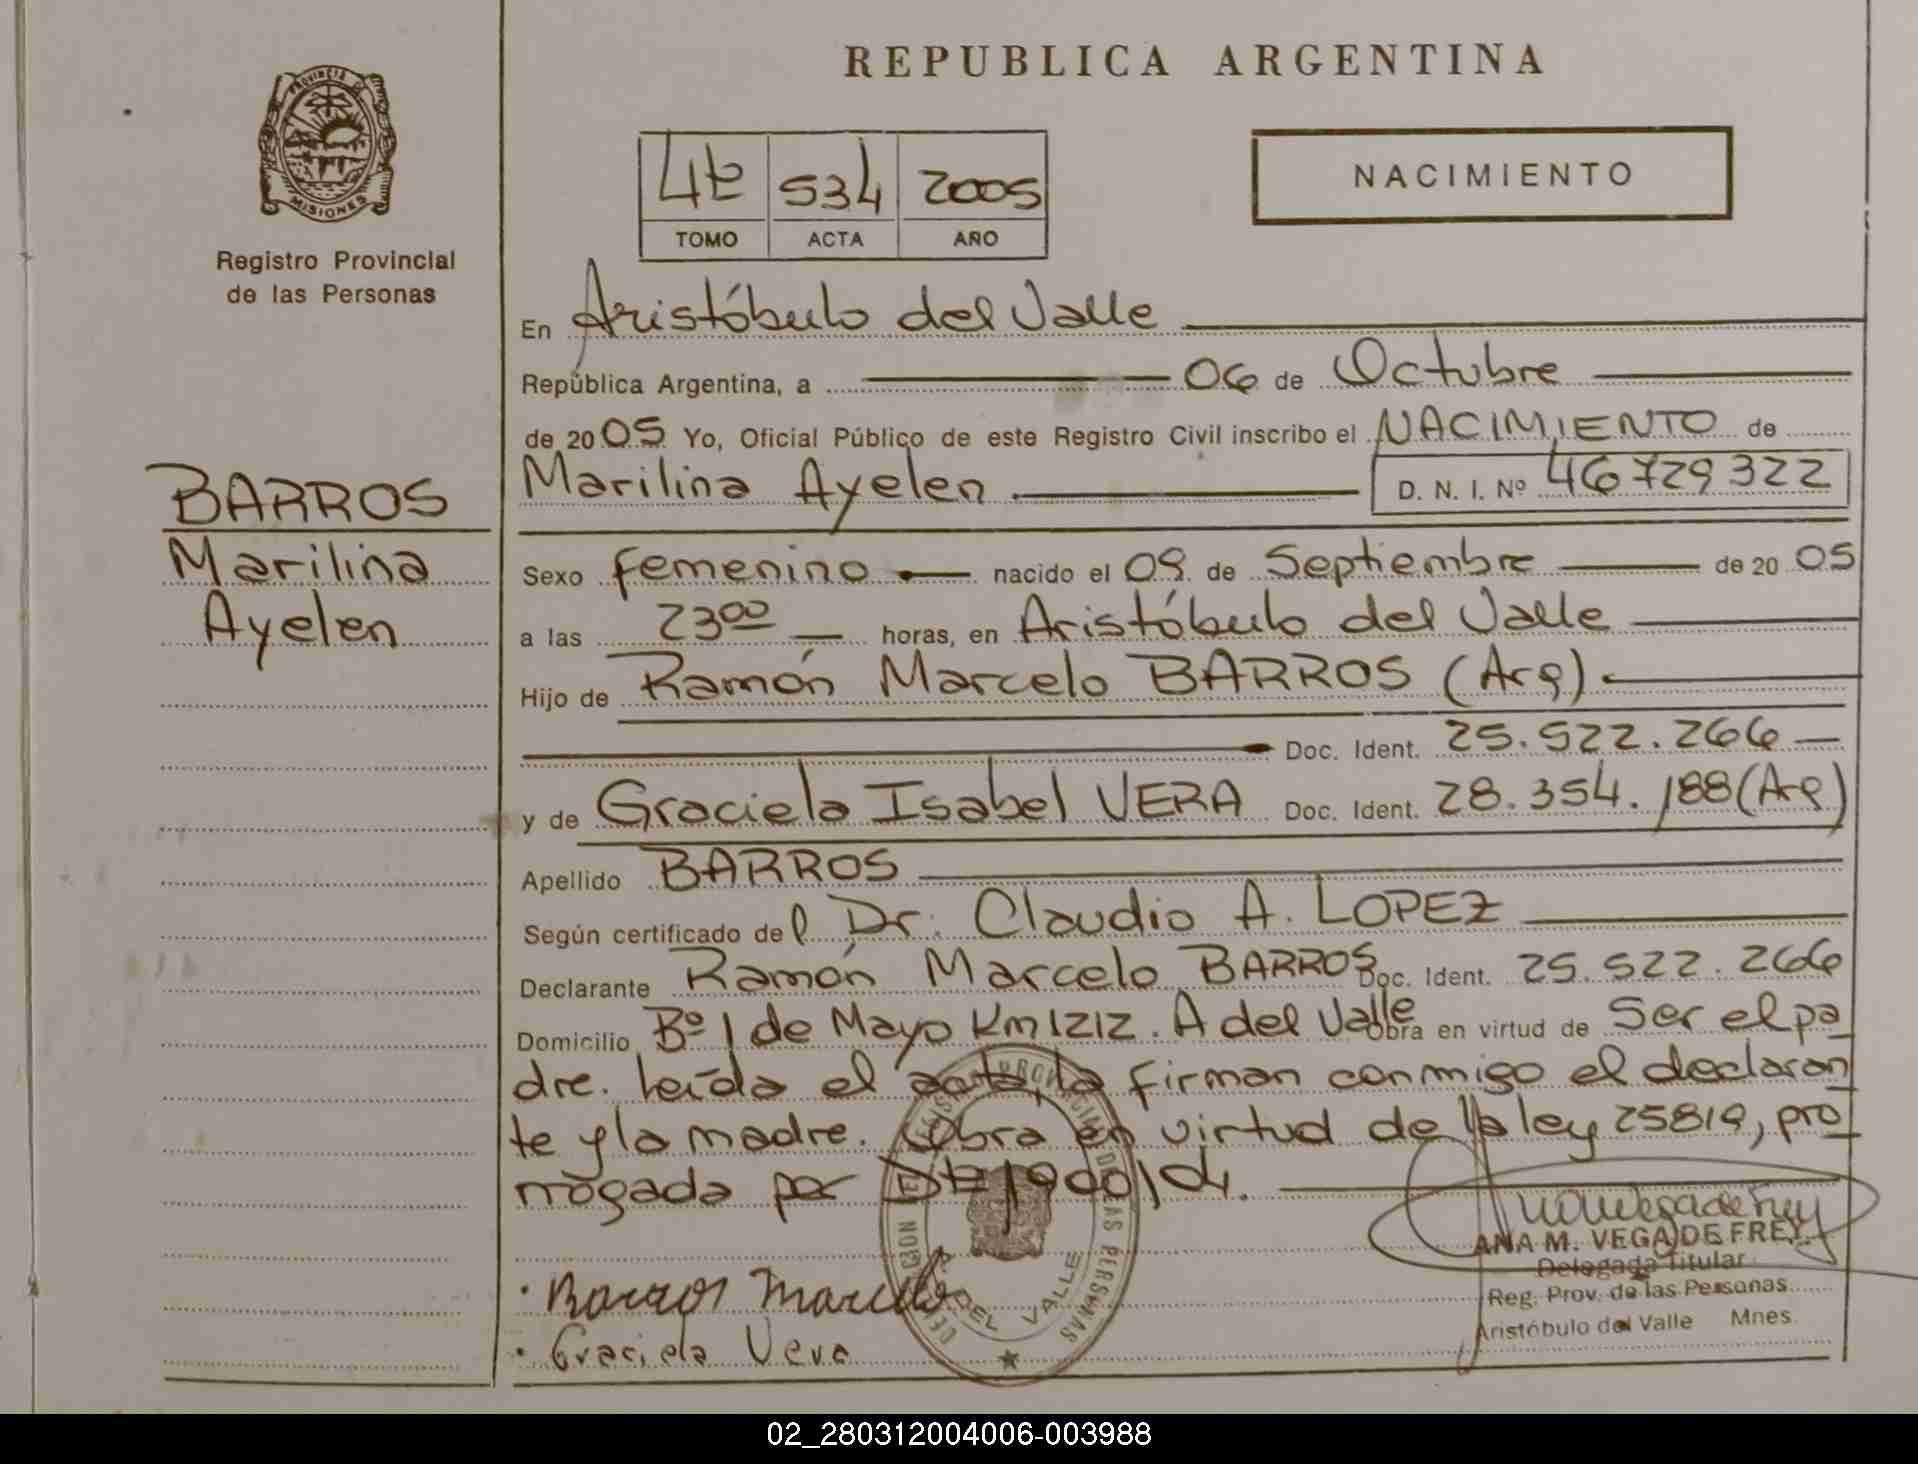 REPUBLICA ARGENTINA
PROVINCIA DE
MISIONES
Registro Provincial
de las Personas
4t 534 2005
TOMO ACTA AÑO
NACIMIENTO
En Aristóbulo del Valle
República Argentina, a 06 de Octubre
de 2005 Yo, Oficial Público de este Registro Civil inscribo el NACIMIENTO de
Marilina Ayelen D. N. I. Nº 46729322
BARROS
Marilina
Ayelen
Sexo femenino nacido el 09 de Septiembre de 20 05
a las 2300 horas, en Aristóbulo del Valle
Hijo de Ramón Marcelo BARROS (Arg)
Doc. Ident. 25.522.266
y de Graciela Isabel VERA Doc. Ident. 28.354.188 (Arg)
Apellido BARROS
Según certificado del Dr. Claudio A. LOPEZ
Declarante Ramón Marcelo BARROS Doc. Ident. 25.522.266
Domicilio Bº 1 de Mayo Km 1212. A del Valle Obra en virtud de Ser el pa
dre. Leída el acta, la firman conmigo el declaran
te y la madre. Obra en virtud de la ley 25819, pro
rrogada por
Barros Marcelo
Graciela Vera
DEL VALLE
ANA M. VEGA DE FREY
Delegada Titular
Reg. Prov. de las Personas
Aristóbulo del Valle Mnes.
02_280312004006-003988